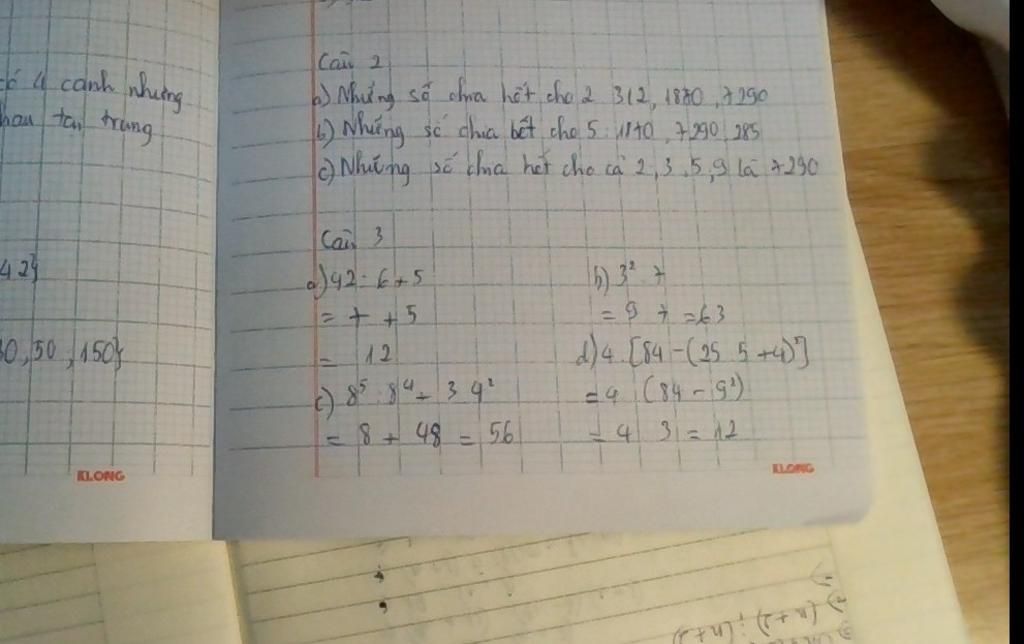 có 4 cạnh nhưng
nhau tại trung
42}
30, 50, 150}
KLONG
Câu 2
a) Những số chia hết cho 2: 312, 1870, 7290
b) Những số chia hết cho 5: 1170, 7290, 285
c) Những số chia hết cho cả 2, 3, 5, 9 là 7290
Câu 3
a) 42 : 6 + 5
= 7 + 5
= 12
b) 3² . 7
= 9 . 7 = 63
c) 8⁵ : 8⁴ + 3 . 4²
= 8 + 48 = 56
d) 4 . [84 - (25 : 5 + 4)²]
= 4 . (84 - 9²)
= 4 . 3 = 12
KLONG
(n+2) : (n+2)